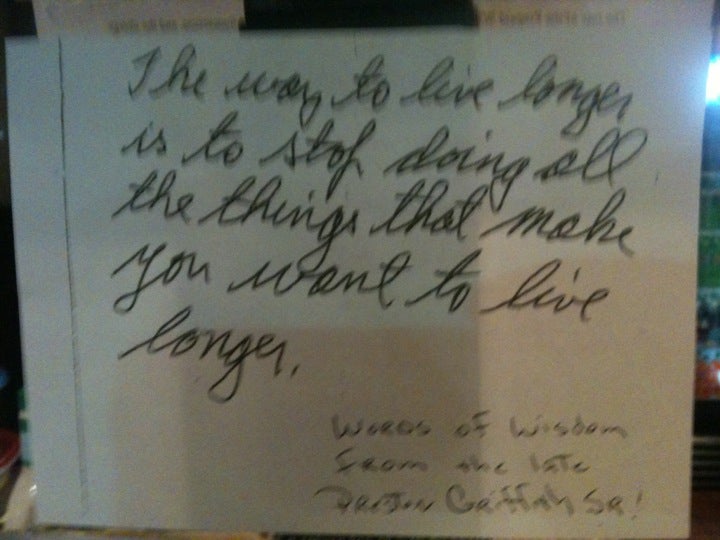 The way to live longer
is to stop doing all
the things that make
you want to live
longer.
Words of Wisdom
From the late
Griffith Sr!